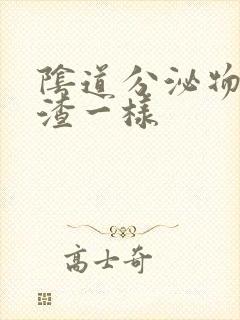 陰道分泌物
渣一樣
高士奇